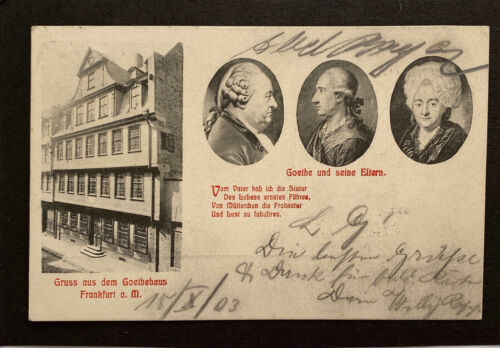 Goethe und seine Eltern.
Vom Vater hab ich die Statur
Des Lebens ernstes Führen,
Von Mütterchen die Frohnatur
Und Lust zu fabuliren.
Gruss aus dem Goethehaus
Frankfurt a. M.
15/X/03
L G
Die besten Grüsse
& Dank für
Dein Willy